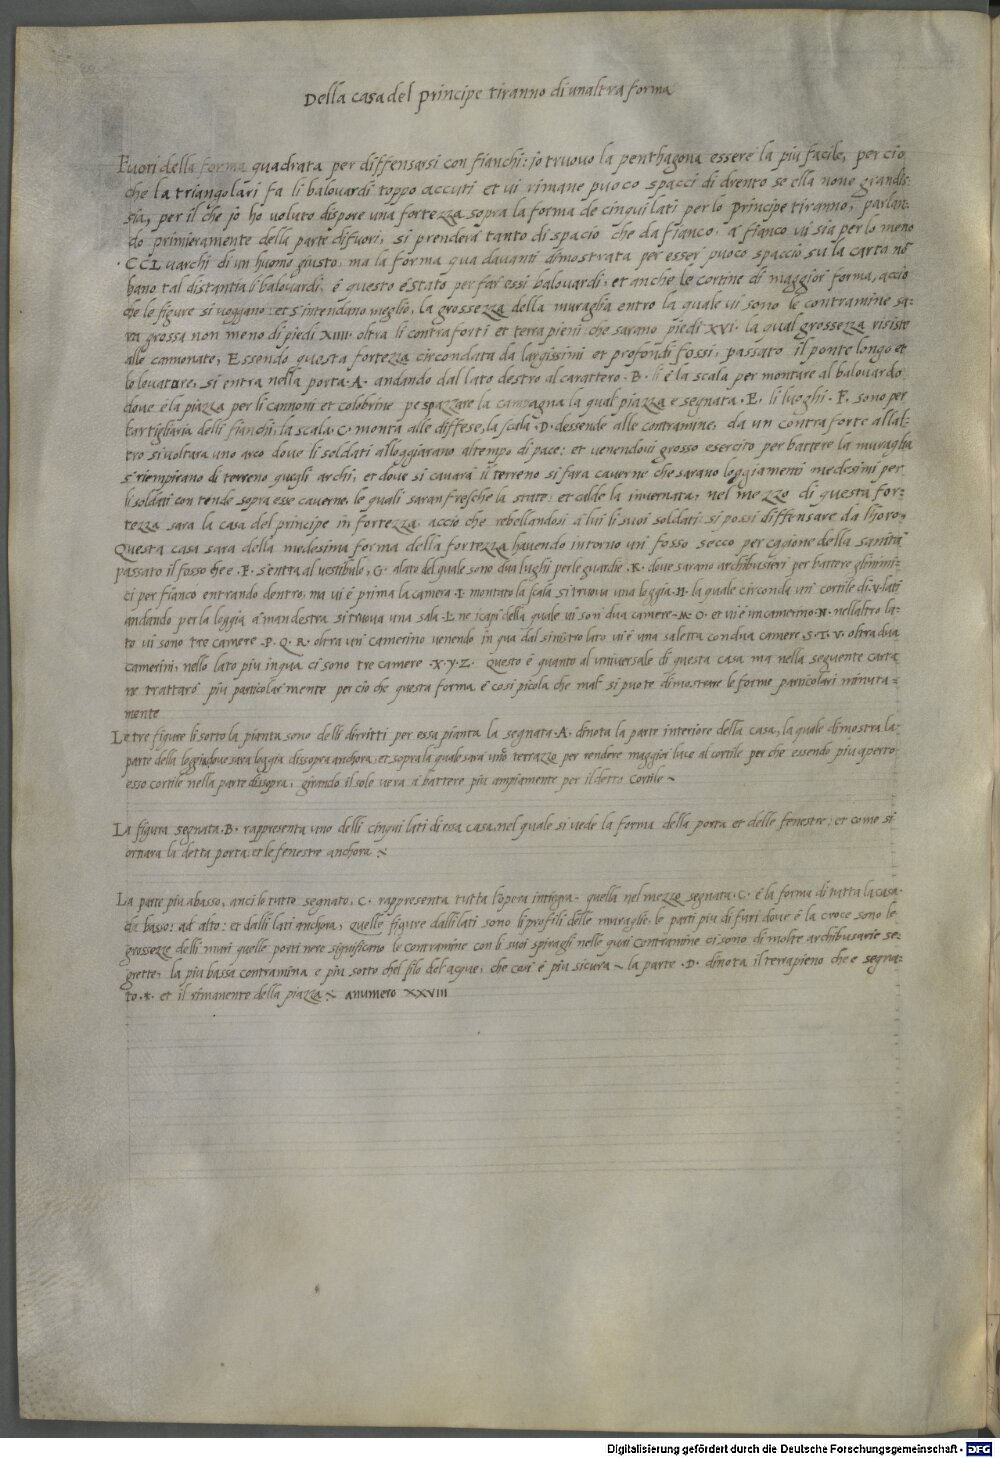 Della casa del principe tiranno di unaltra forma
Fuori della forma quadrata per diffensarsi con fianchi: io truovo la penthagona essere la piu facile, per cio
che la triangolari fa li balouardi troppo accuti et ui rimane puoco spacci di drento se ella none grandis-
sia, per il che jo ho voluto dispore una fortezza sopra la forma de cinqui lati per lo principe tiranno, parlan-
do primieramente della parte difuori, si prendera tanto di spacio che da fianco, a fianco vi sia per lo meno
.CCL. varchi di un huomo giusto, ma la forma qua davanti dimostrata per esser puoco spaccio su la carta no
hano tal distantia li balouardi, é questo é stato per far essi balouardi, et anche le cortine di maggior forma, accio
che le figure si voggano: et s'intendano meglio, la grossezza della muraglia entro la quale vi sono le contramine sa-
ra grossa non meno di piedi XIIII. oltra li contraforti et terrapieni che sarano piedi XVI. la qual grossezza risiste
alle cannonate, Essendo questa fortezza circondata da largissimi et profondi fossi, passato il ponte longo et
lo leuature, si entra nella porta .A. andando dal lato destro al carattero .B. li é la scala per montare al balouardo
dove é la piazza per li cannoni et colobrine pe spazzare la campagna la qual piazza e segnata .E. li luoghi .F. sono per
l'artigliaria delli fianchi, la scala .C. monta alle diffese, la scala .D. dessende alle contramine, da un contraforte allal-
tro si voltara uno arco dove li soldati alloggiarano al tempo di pace: et venendovi grosso esercito per battere la muraglia
s'riempirano di terreno quegli archi, et dove si cavara il terreno si fara caverne che sarano loggiamenti medesimi per
li soldati con tende sopra esse caverne, le quali saran fresche la state: et calde la invernata, nel mezzo di questa for-
tezza sara la casa del principe in fortezza accio che rebellandosi a lui li suoi soldati si possi diffensare da lhoro-
Questa casa sara della medesima forma della fortezza havendo intorno un fosso secco per cagione della sanita
passato il fosso che e .F. s'entra al vestibulo, G. alato del quale sono dua lughi per le guardie .K. dove sarano archibusieri per battere gl'inimi-
ci per fianco entrando dentro, ma vi é prima la camera .I. montato la scala si truova una loggia .H. la quale circonda un cortile di .V. lati
andando per la loggia a man destra si truova una sala .L. ne i capi della quale vi son dua camere .M. O. et vi é un camerino .N. nell altro la-
to vi sono tre camere .P. Q. R. oltra un camerino venendo in qua dal sinistro lato vi é una saletta con dua camere .S. T. V. oltra dua
camerini, nello lato piu in qua ci sono tre camere .X. Y. Z. Questo é quanto al universale di questa casa ma nella seguente carta
ne trattaro piu particolarmente per cio che questa forma é cosi picola che mal si puote dimostrare le forme particolari minuta-
mente
Le tre figure li sotto la pianta sono delli diritti per essa pianta la segnata .A. dinota la parte interiore della casa, la quale dimostra la
parte della loggia dove sara loggia dissopra anchora, et sopra la quale sara uno terrazzo per rendere maggior luce al cortile per che essendo piu aperto
esso cortile nella parte dissopra, girando il sole vera a battere piu ampiamente per il detto cortile
La figura segnata .B. rappresenta uno delli cinqui lati di essa casa, nel quale si vede la forma della porta et delle fenestre: et come si
ornara la detta porta, et le fenestre anchora
La parte piu abasso, anci lo tutto segnato, C. rappresenta tutta l'opera intiegra. quella nel mezzo segnata .C. é la forma di tutta la casa
da basso: ad alto: et dalli lati anchora, quelle figure dalli lati sono li profili delle muraglie. le parti piu di furi dove é la croce sono le
grossezze delli muri quelle porti nere significano le contramine con li suoi spiragli nelle quai contramine ci sono di molte archibusarie se-
grette, la piu bassa contramina e piu sotto chel filo del'acque, che cosi é piu sicura la parte .D. dinota il terrapieno che e segna-
to .*. et il rimanente della piazza anumero XXVIII
Digitalisierung gefördert durch die Deutsche Forschungsgemeinschaft - DFG